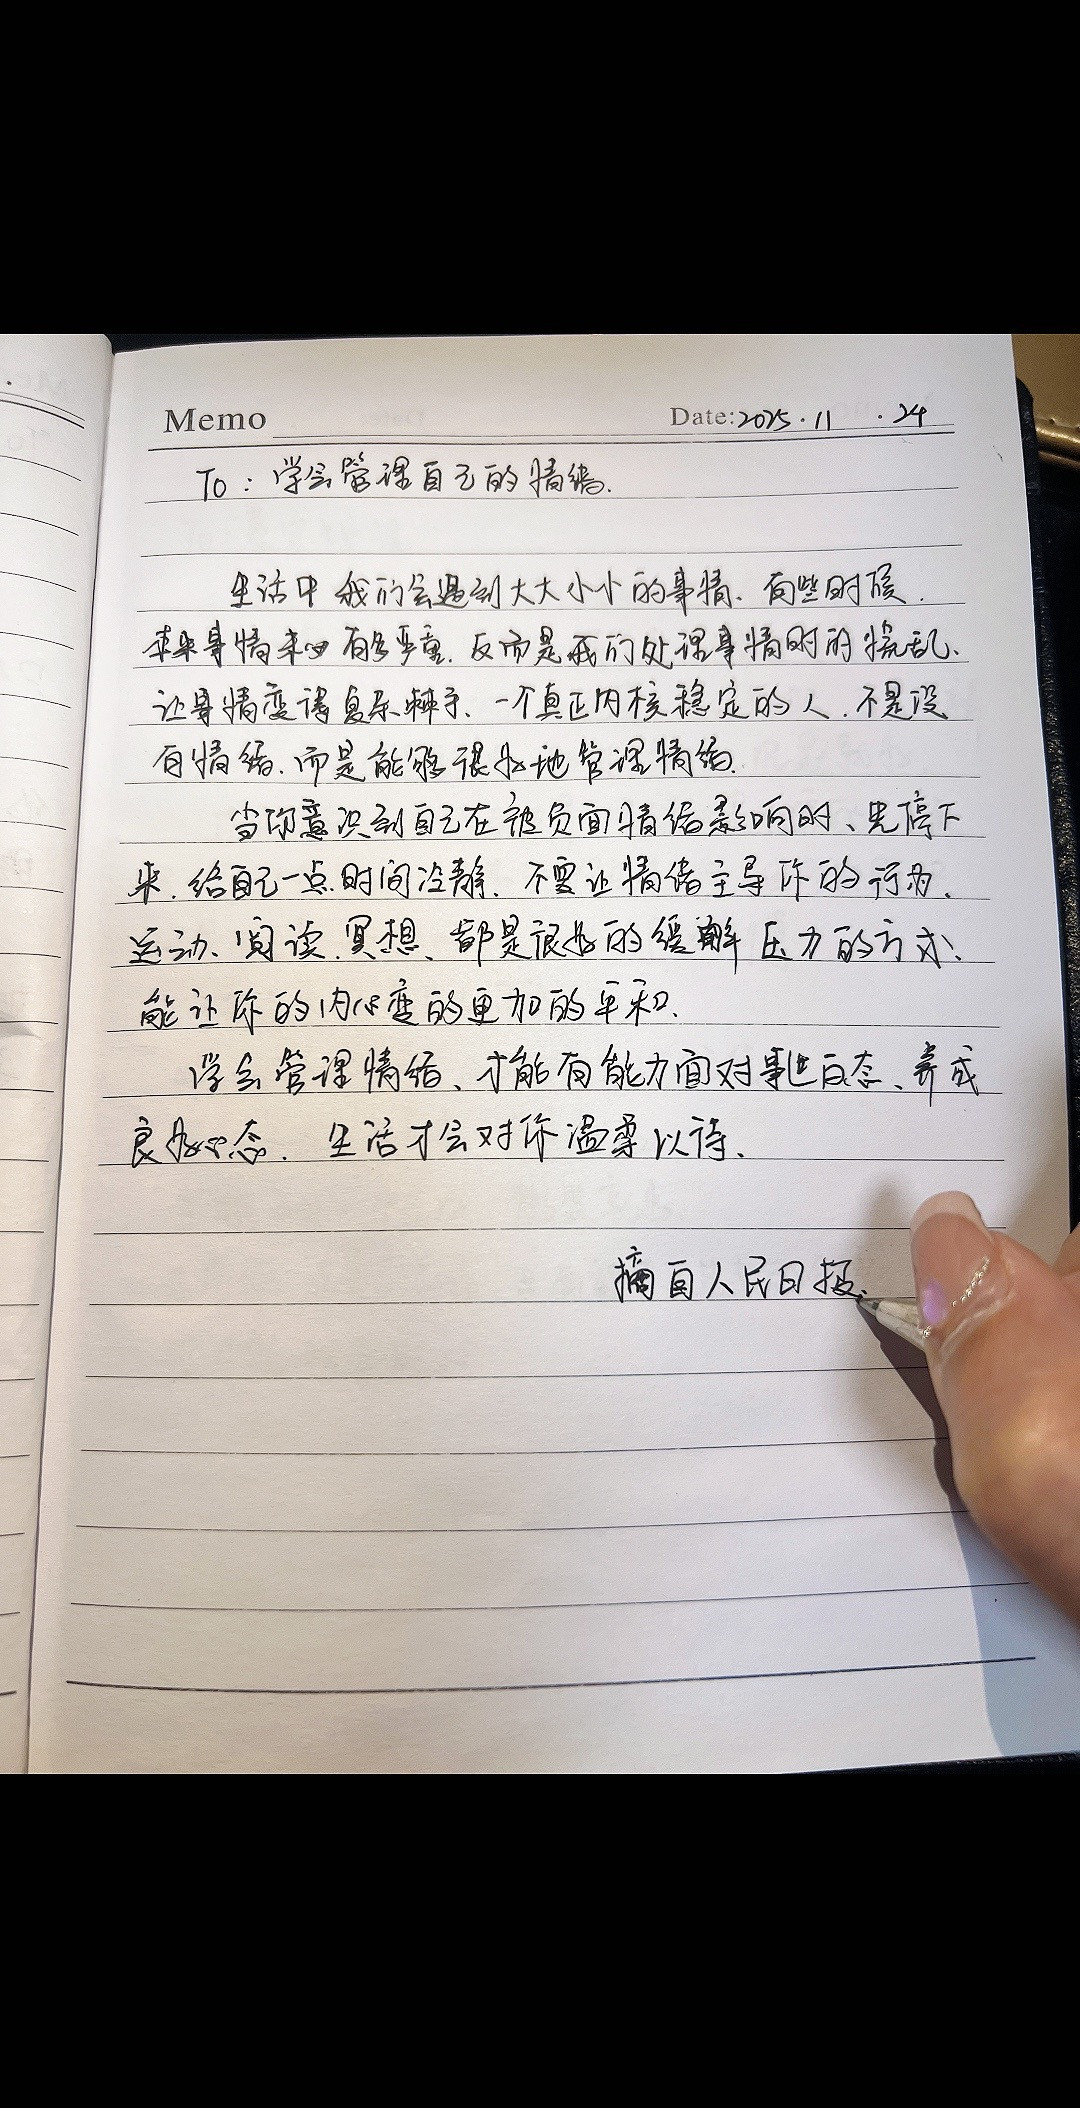 Memo
Date:2025.11.24
To：学会管理自己的情绪.
生活中我们会遇到大大小小的事情、有些时候.
本来事情没有多严重.反而是我们处理事情时的慌乱、
让事情变得复杂棘手、一个真正内核稳定的人.不是没
有情绪.而是能够很好地管理情绪.
当你意识到自己在被负面情绪影响时、先停下
来.给自己一点时间冷静.不要让情绪主导你的行为.
运动、阅读.冥想、都是很好的缓解压力的方式、
能让你的内心变的更加的平和.
学会管理情绪、才能有能力面对事世百态、养成
良好心态.生活才会对你温柔以待、
摘自人民日报.